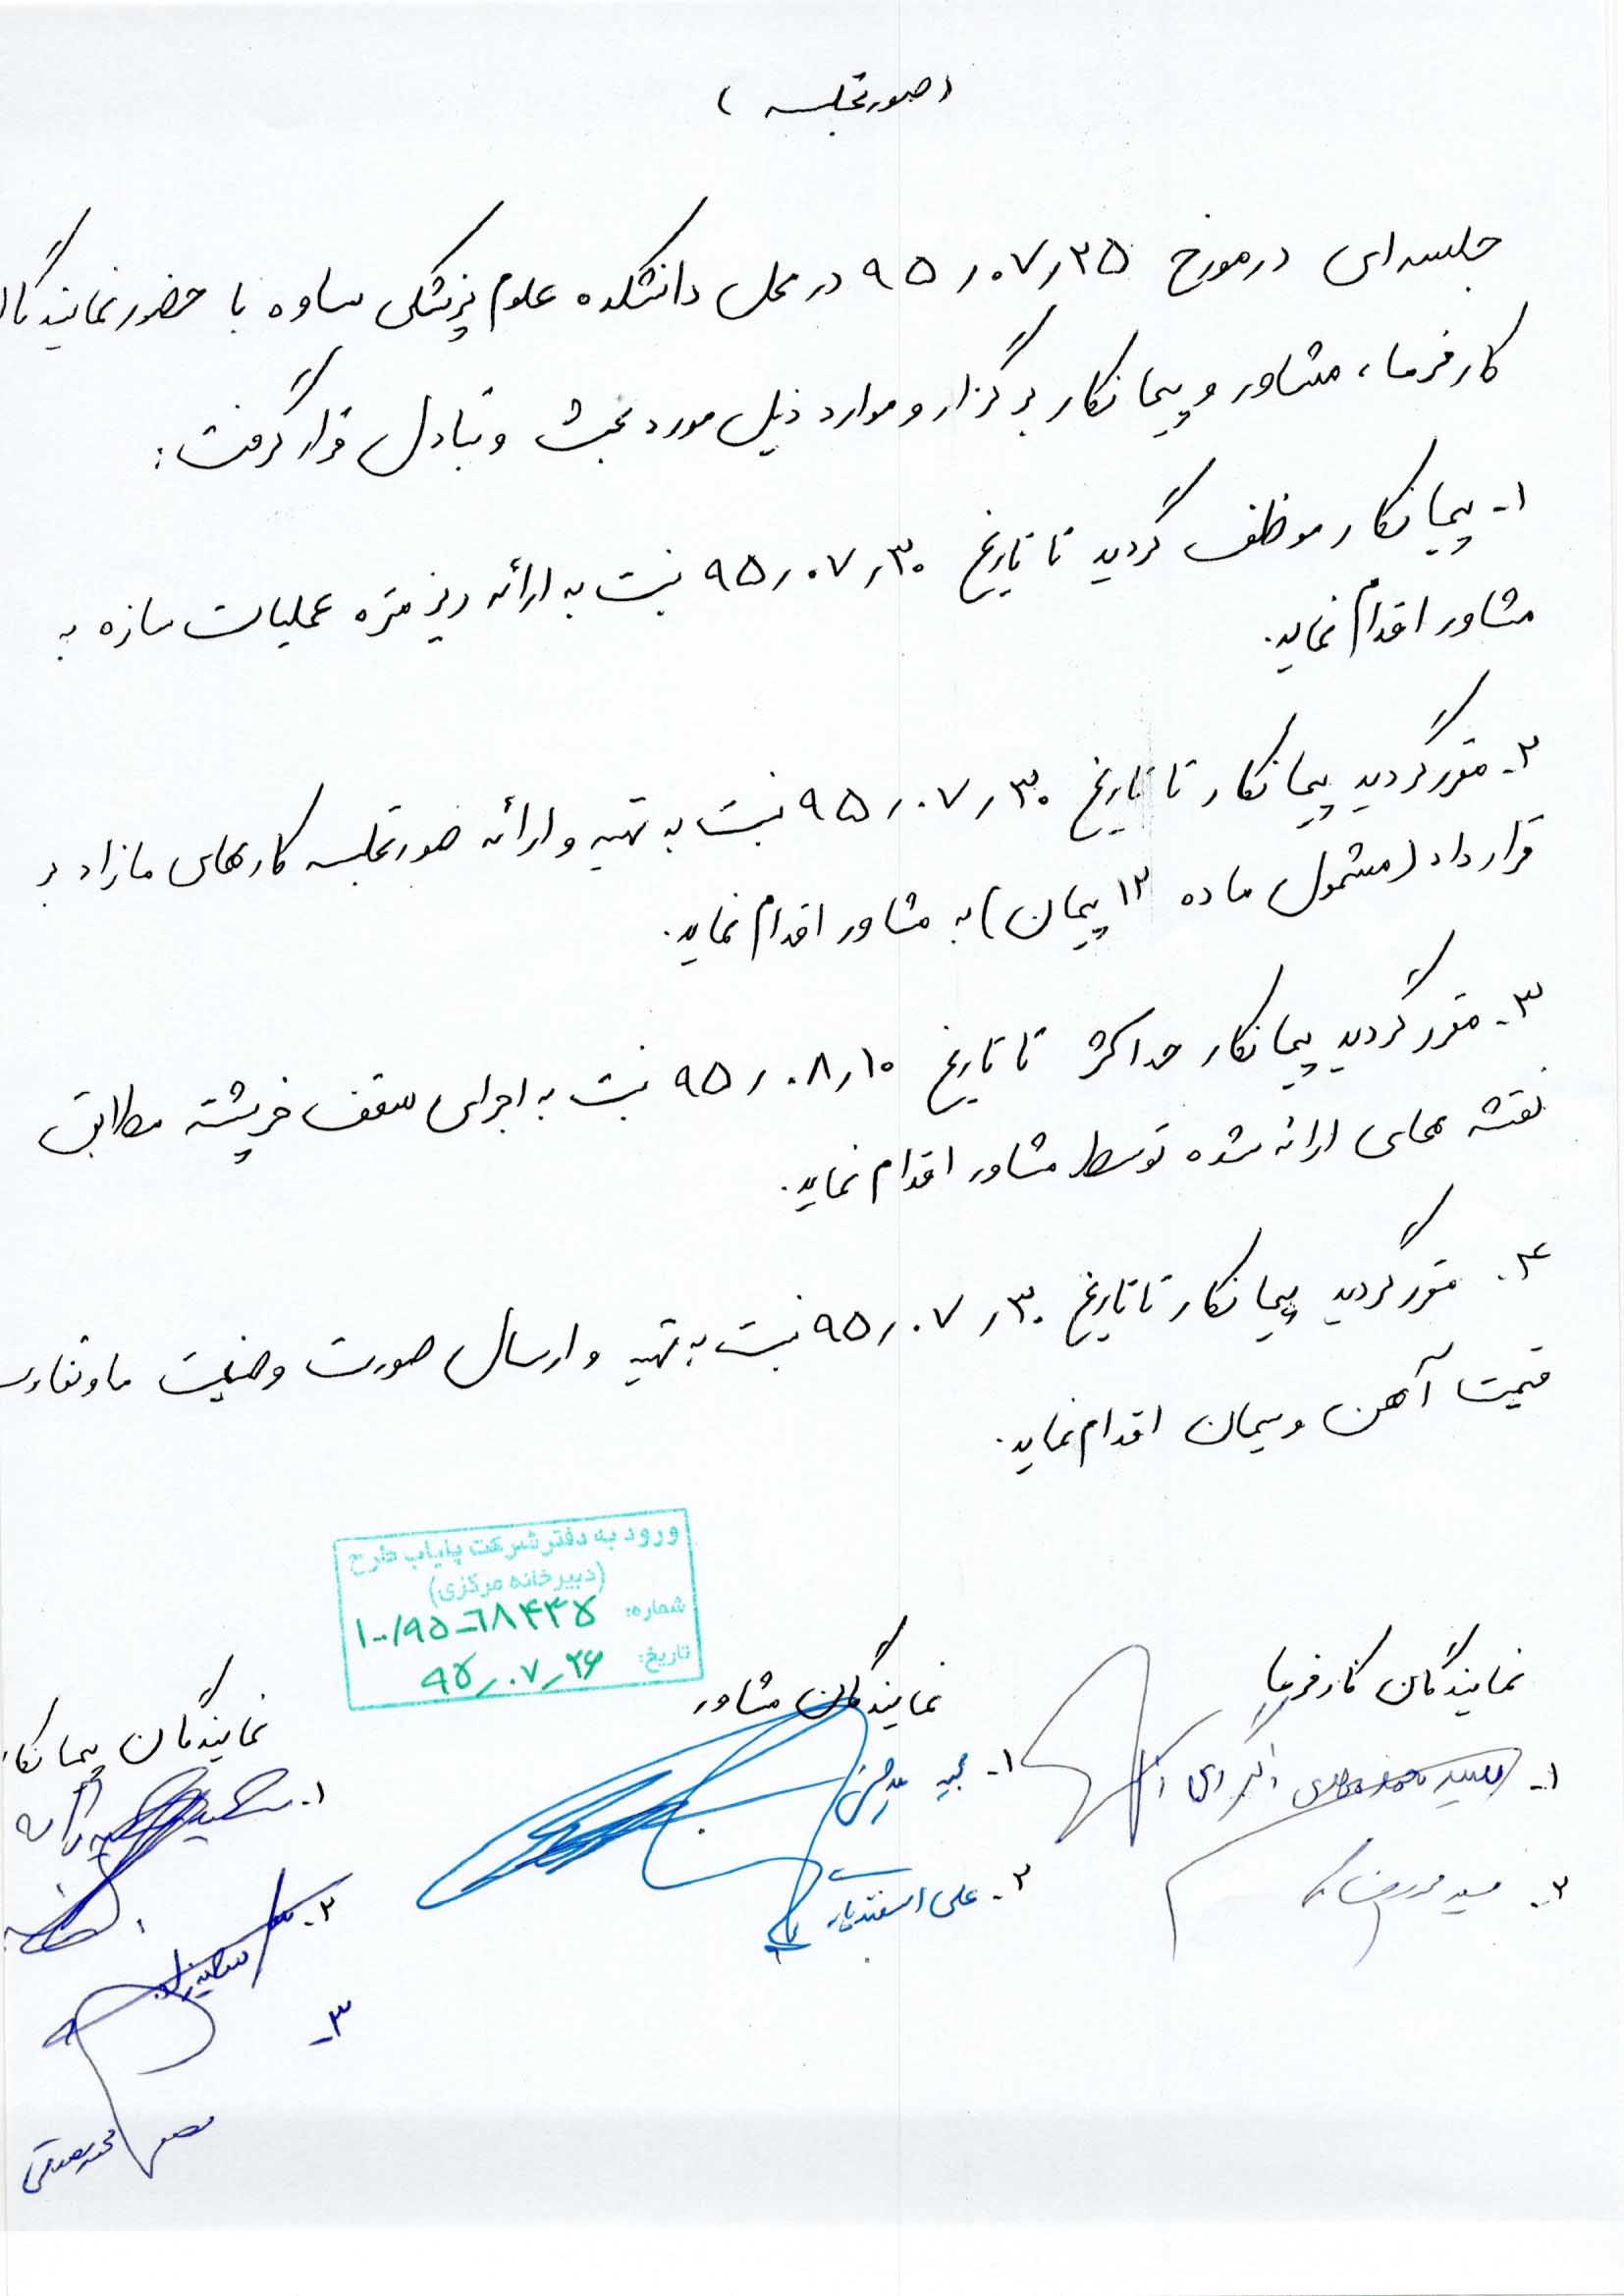 (صورتجلسه)
جلسه‌ای در مورخ ۹۵٫۰۷٫۲۵ در محل دانشکده علوم پزشکی ساوه با حضور نمایندگان
کارفرما، مشاور و پیمانکار برگزار و موارد ذیل مورد بحث و تبادل قرار گرفت:
۱- پیمانکار موظف گردید تا تاریخ ۹۵٫۰۷٫۳۰ نسبت به ارائه ریز متره عملیات سازه به
مشاور اقدام نماید.
۲- مقرر گردید پیمانکار تا تاریخ ۹۵٫۰۷٫۳۰ نسبت به تهیه و ارائه صورتجلسه کارهای مازاد بر
قرارداد (مشمول ماده ۱۲ پیمان) به مشاور اقدام نماید.
۳- مقرر گردید پیمانکار حداکثر تا تاریخ ۹۵٫۰۸٫۱۰ نسبت به اجرای سقف خرپشته مطابق
نقشه های ارائه شده توسط مشاور اقدام نماید.
۴- مقرر گردید پیمانکار تا تاریخ ۹۵٫۰۷٫۳۰ نسبت به تهیه و ارسال صورت وضعیت مابه‌تفاوت
قیمت آهن و سیمان اقدام نماید.
ورود به دفتر شرکت پایاب طرح
(دبیرخانه مرکزی)
شماره: ۱۰۰/۹۵-۶۸۴۴۵
تاریخ: ۹۵٫۰۷٫۲۶
نمایندگان کارفرما
۱-
۲- سید
نمایندگان مشاور
۱- مجید
۲- علی اسفندیار
نمایندگان پیمانکار
۱-
۲-
۳-